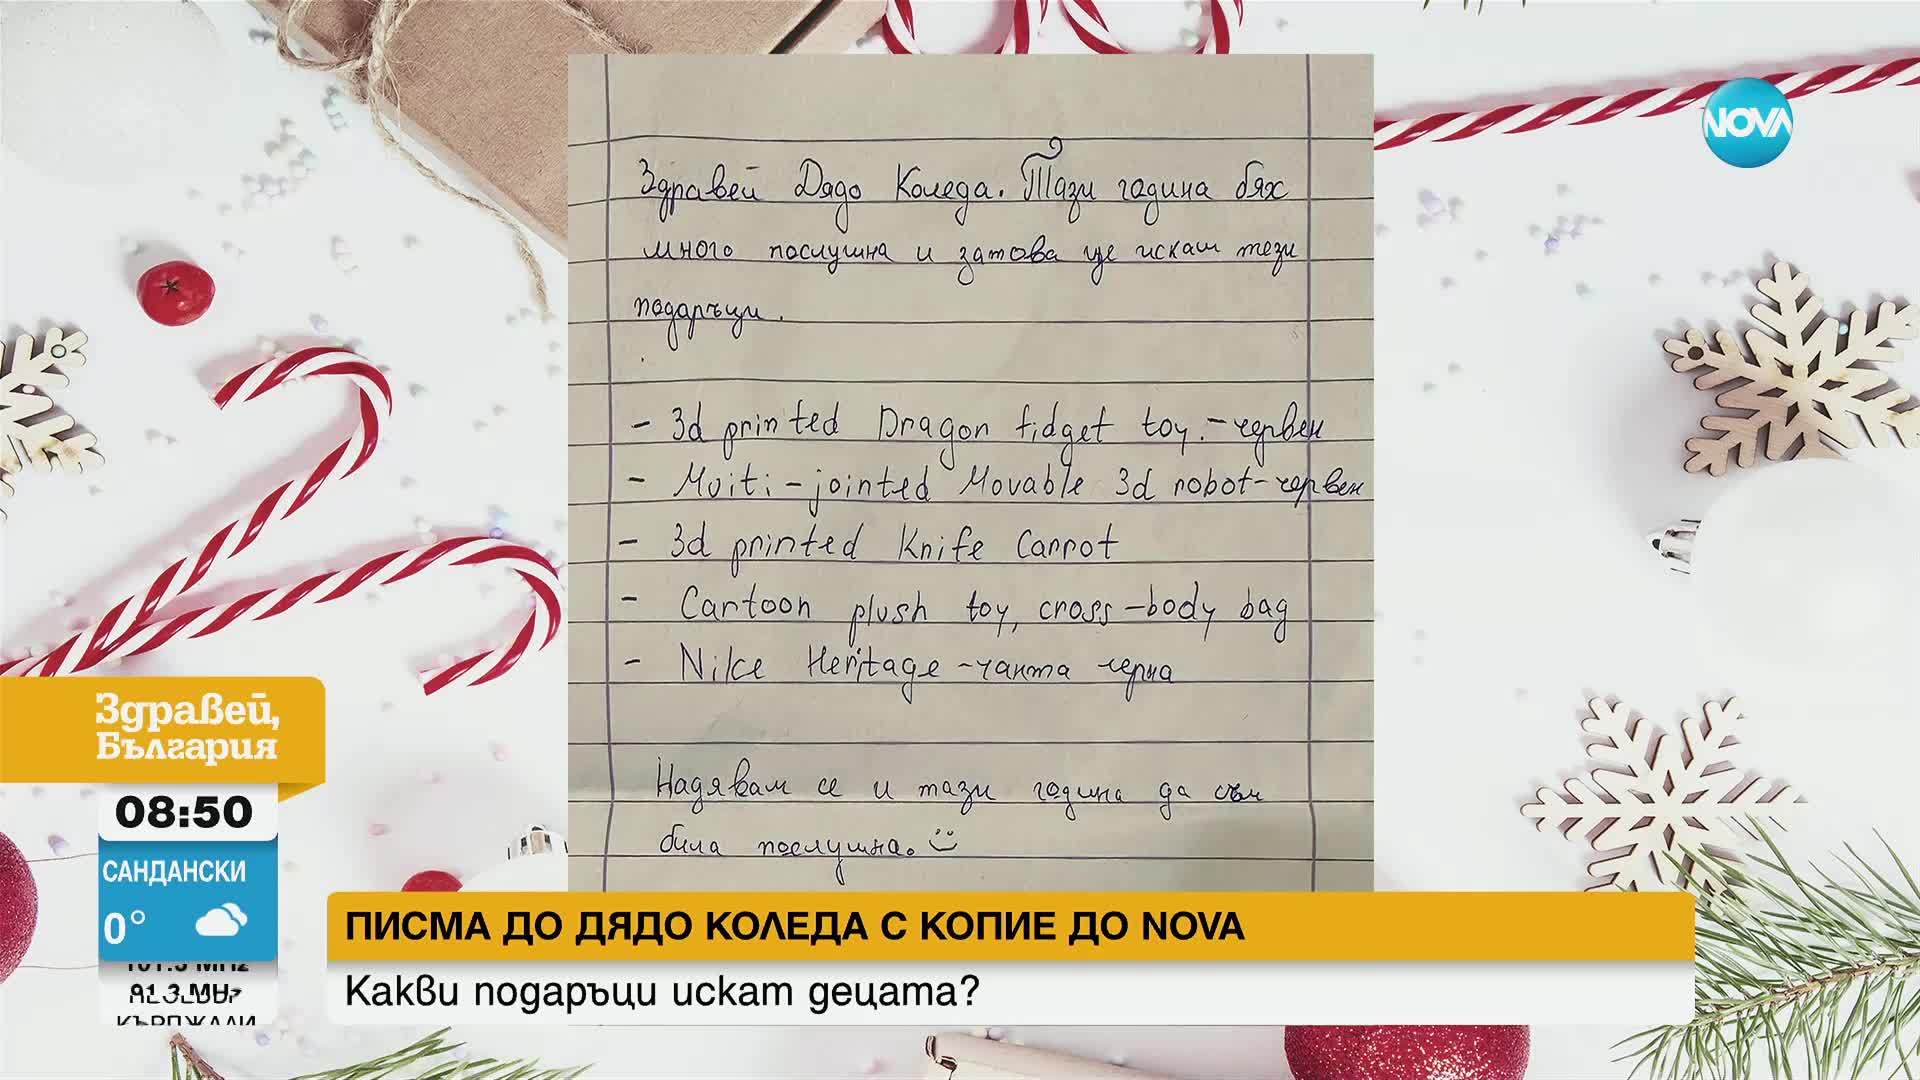 NOVA
Здравей Дядо Коледа. Тази година бях
много послушна и затова ще искаш тези
подаръци.
- 3d printed Dragon fidget toy. - червен
- Muiti-jointed Movable 3d robot - червен
- 3d printed Knife Carrot
- Cartoon plush toy, cross-body bag
- Nike Heritage - чанта черна
Надявам се и тази година да съм
била послушна. ü
Здравей,
България
08:50
САНДАНСКИ
0°
ПИСМА ДО ДЯДО КОЛЕДА С КОПИЕ ДО NOVA
Какви подаръци искат децата?